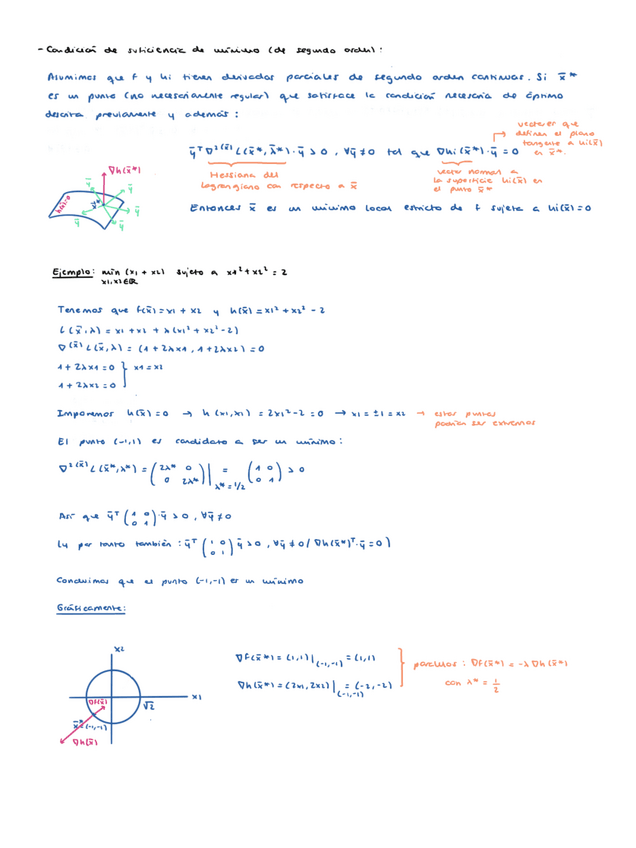 - Condición de suficiencia de mínimo (de segundo orden):
Asumimos que f y hi tienen derivadas parciales de segundo orden continuas. Si x̄*
es un punto (no necesariamente regular) que satisface la condición necesaria de óptimo
descrita previamente y además:
vectores que
definen el plano
tangente a hi(x̄)
en x̄*.
ȳᵀ ∇²⁽ˣ̄⁾ L(x̄*, λ̄*)·ȳ > 0, ∀ȳ≠0 tal que ∇hi(x̄*)·ȳ = 0
Hessiana del
lagrangiano con respecto a x̄
vector normal a
la superficie hi(x̄) en
el punto x̄*
Entonces x̄ es un mínimo local estricto de f sujeta a hi(x̄)=0
∇h(x̄*)
ȳ
ȳ
ȳ
ȳ
x̄*
h(x̄)=0
Ejemplo: min (x1 + x2) sujeto a x1² + x2² = 2
x1,x2∈ℝ
Tenemos que f(x̄) = x1 + x2 y h(x̄) = x1² + x2² - 2
L(x̄,λ) = x1 + x2 + λ(x1² + x2² - 2)
∇⁽ˣ̄⁾ L(x̄,λ) = (1 + 2λx1, 1 + 2λx2) = 0
1 + 2λx1 = 0 } x1 = x2
1 + 2λx2 = 0
Imponemos h(x̄) = 0 → h(x1,x1) = 2x1² - 2 = 0 → x1 = ±1 = x2 → estos puntos
podrían ser extremos
El punto (-1,1) es candidato a ser un mínimo:
∇²⁽ˣ̄⁾ L(x̄*,λ*) = (2λ* 0 / 0 2λ*)|λ*=1/2 = (1 0 / 0 1) > 0
Así que ȳᵀ (1 0 / 0 1)·ȳ > 0, ∀ȳ≠0
(y por tanto también: ȳᵀ (1 0 / 0 1) ȳ > 0, ∀ȳ≠0 / ∇h(x̄*)ᵀ·ȳ = 0)
Concluimos que el punto (-1,-1) es un mínimo
Gráficamente:
x2
x1
√2
∇f(x̄)
x̄*=(-1,-1)
∇h(x̄)
∇f(x̄*) = (1,1)|(-1,-1) = (1,1)
∇h(x̄*) = (2x1, 2x2)|(-1,-1) = (-2,-2)
paralelos: ∇f(x̄*) = -λ ∇h(x̄*)
con λ* = 1/2